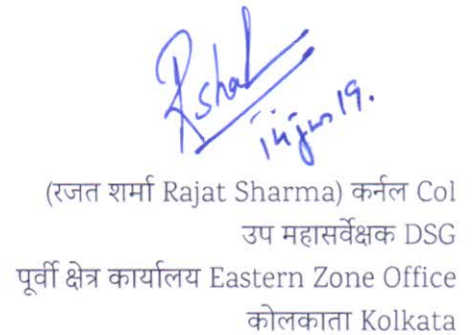 Rshal
14 jun 19.
(रजत शर्मा Rajat Sharma) कर्नल Col
उप महासर्वेक्षक DSG
पूर्वी क्षेत्र कार्यालय Eastern Zone Office
कोलकाता Kolkata